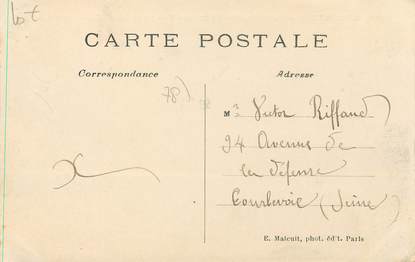 Lot
CARTE POSTALE
Correspondance
Adresse
78)
Mr Victor Riffaud
94 Avenue de
la défense
Courbevoie (Seine)
E. Malcuit, phot. édit. Paris